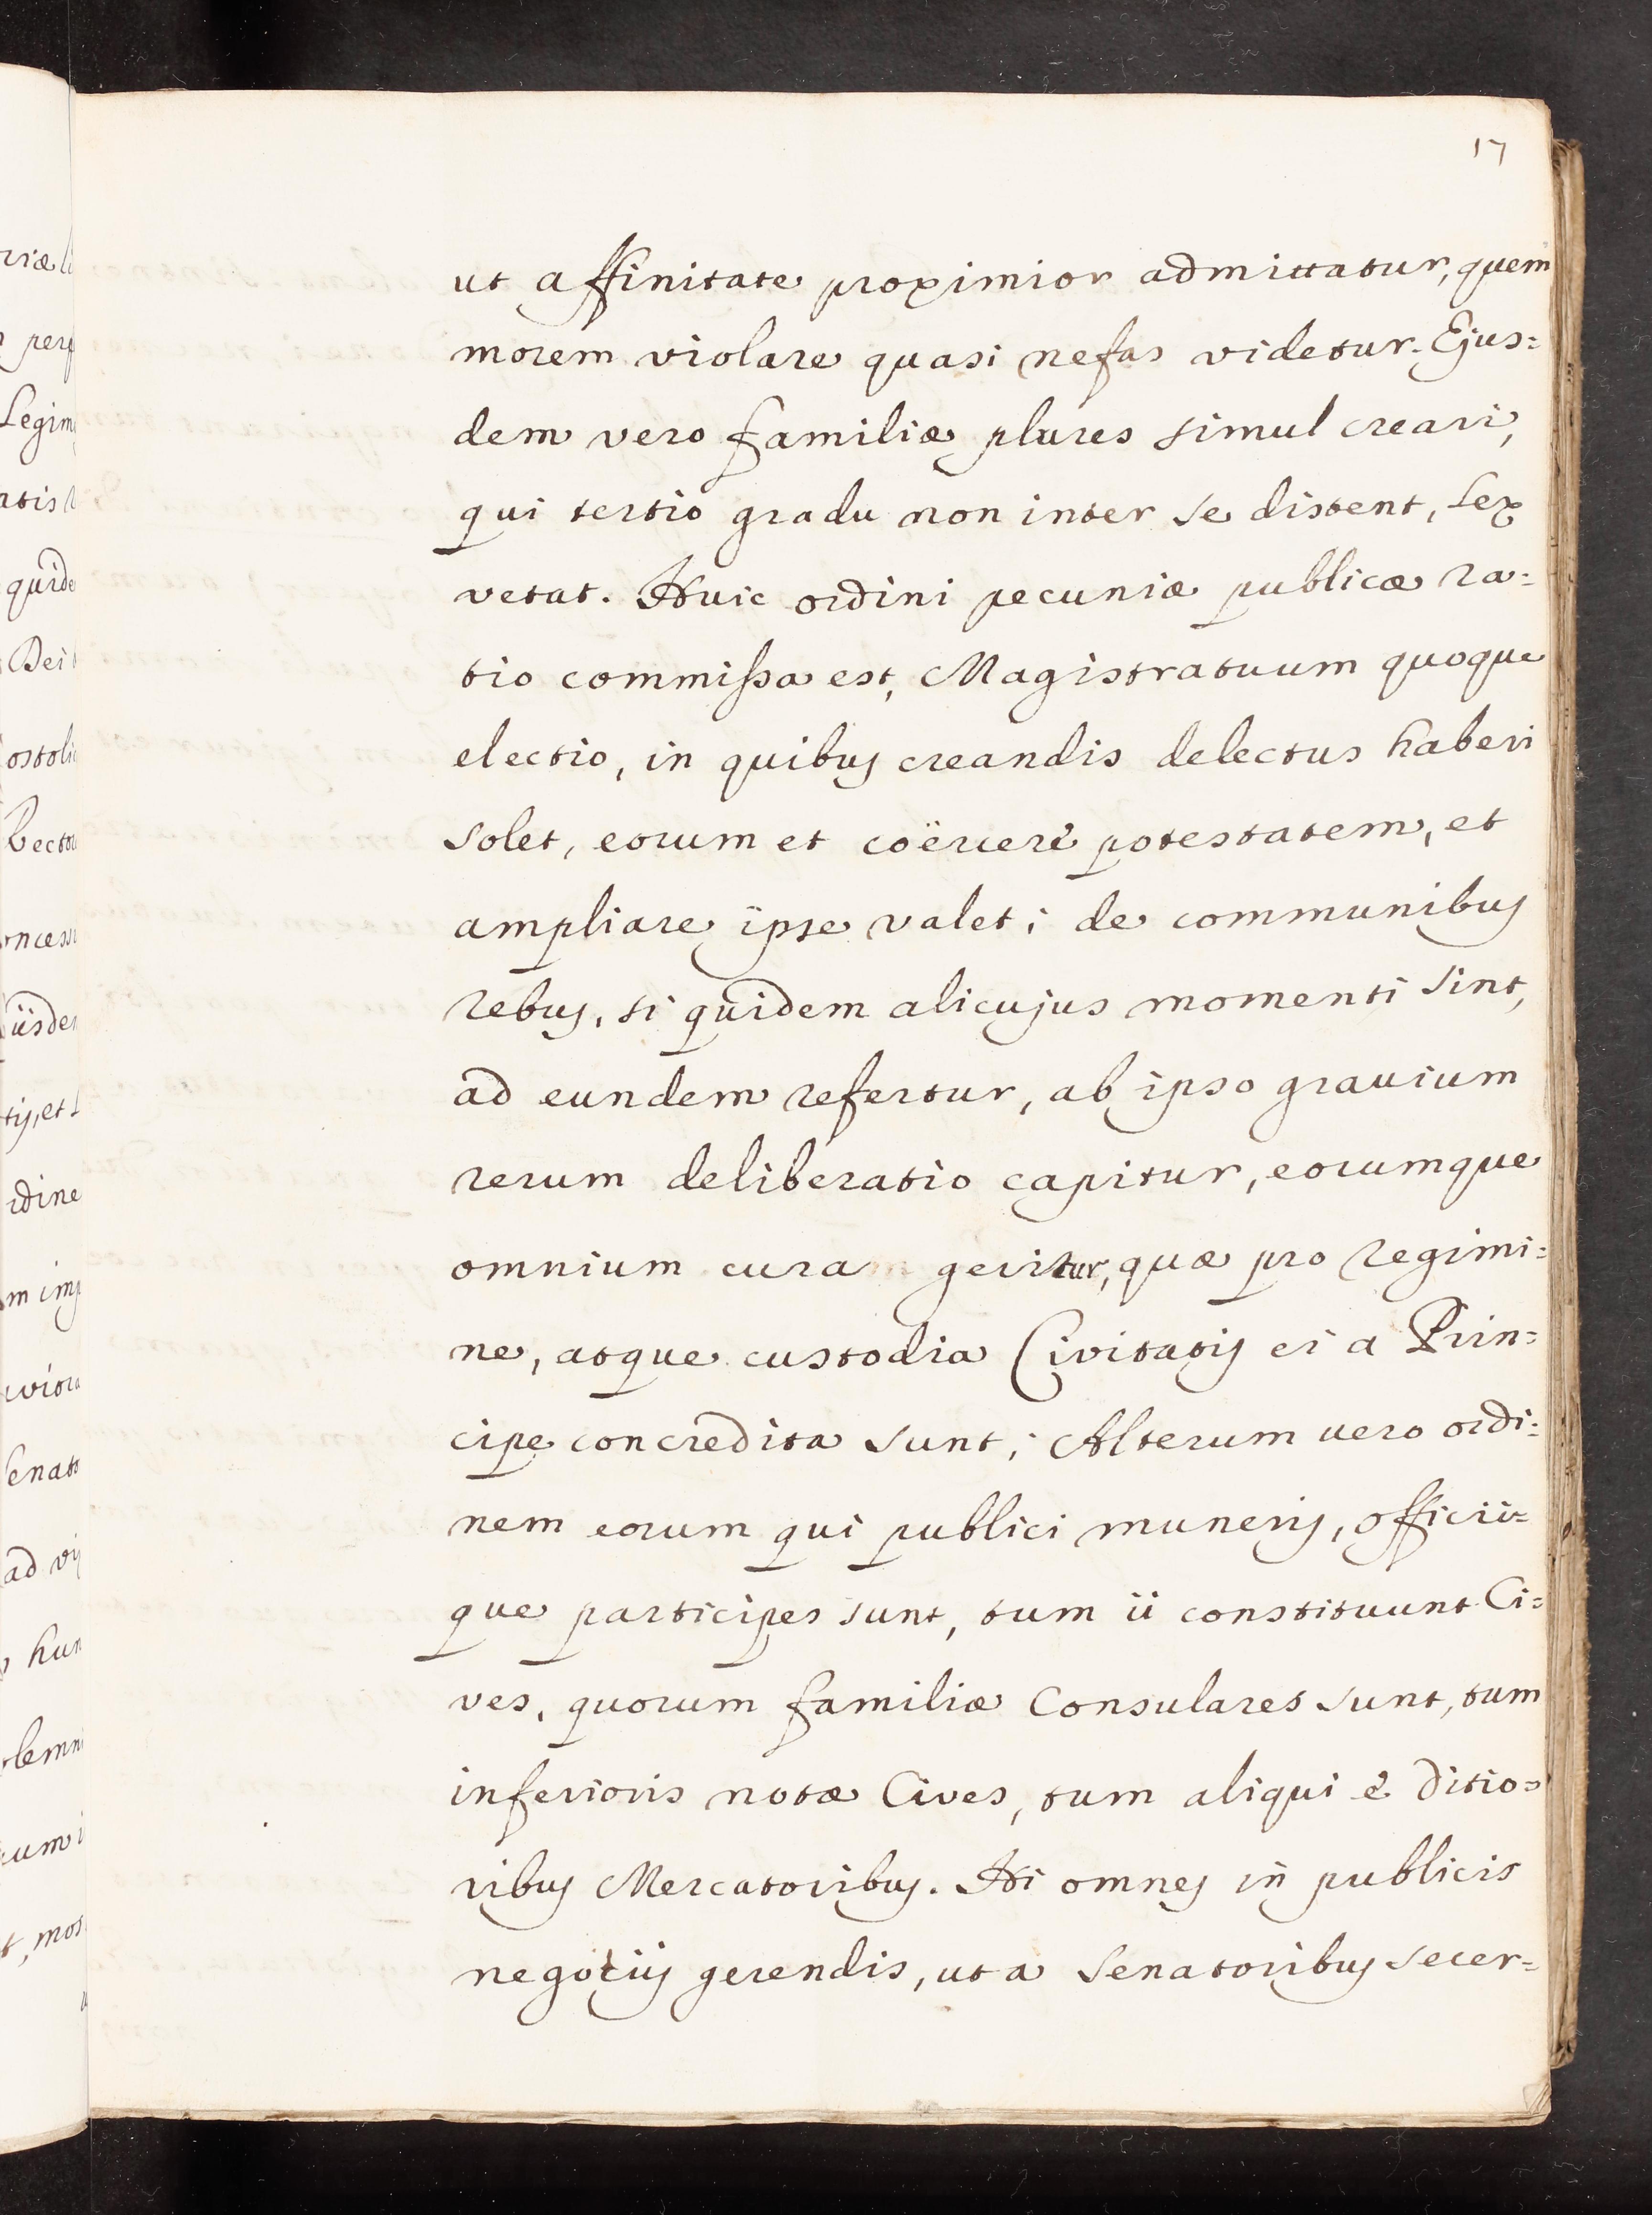 17
ut affinitate proximior admittatur, quem
morem violare quasi nefas videtur. Ejus=
dem vero familiæ plures simul creari,
qui tertio gradu non inter se distent, Lex
vetat. Huic ordini pecuniæ publicæ ra=
tio commissa est, Magistratuum quoque
electio, in quibus creandis delectus haberi
solet, eorum et coërcere potestatem, et
ampliare ipse valet; de communibus
rebus, si quidem alicujus momenti sint,
ad eundem refertur, ab ipso gravium
rerum deliberatio capitur, eorumque
omnium cura geritur, quæ pro regimi=
ne, atque custodia Civitatis ei a Prin=
cipe concredita sunt; Alterum vero ordi=
nem eorum qui publici muneris, officii=
que participes sunt, tum ii constituunt Ci=
ves, quorum familiæ Consulares sunt, tum
inferioris notæ Cives, tum aliqui è ditio=
ribus Mercatoribus. Hi omnes in publicis
negotiis gerendis, ut a Senatoribus secer=